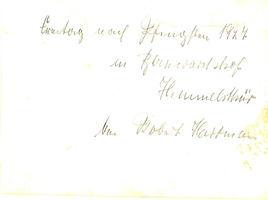 Freitag nach Pfingsten 1927
in Bernwardshof
Himmelsthür
bei Robert Hartmann